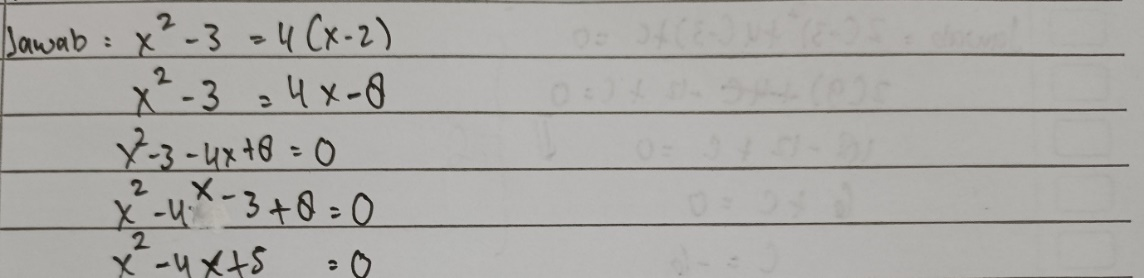 Jawab : x² - 3 = 4(x-2)
x² - 3 = 4x - 8
x² - 3 - 4x + 8 = 0
x² - 4x - 3 + 8 = 0
x² - 4x + 5 = 0